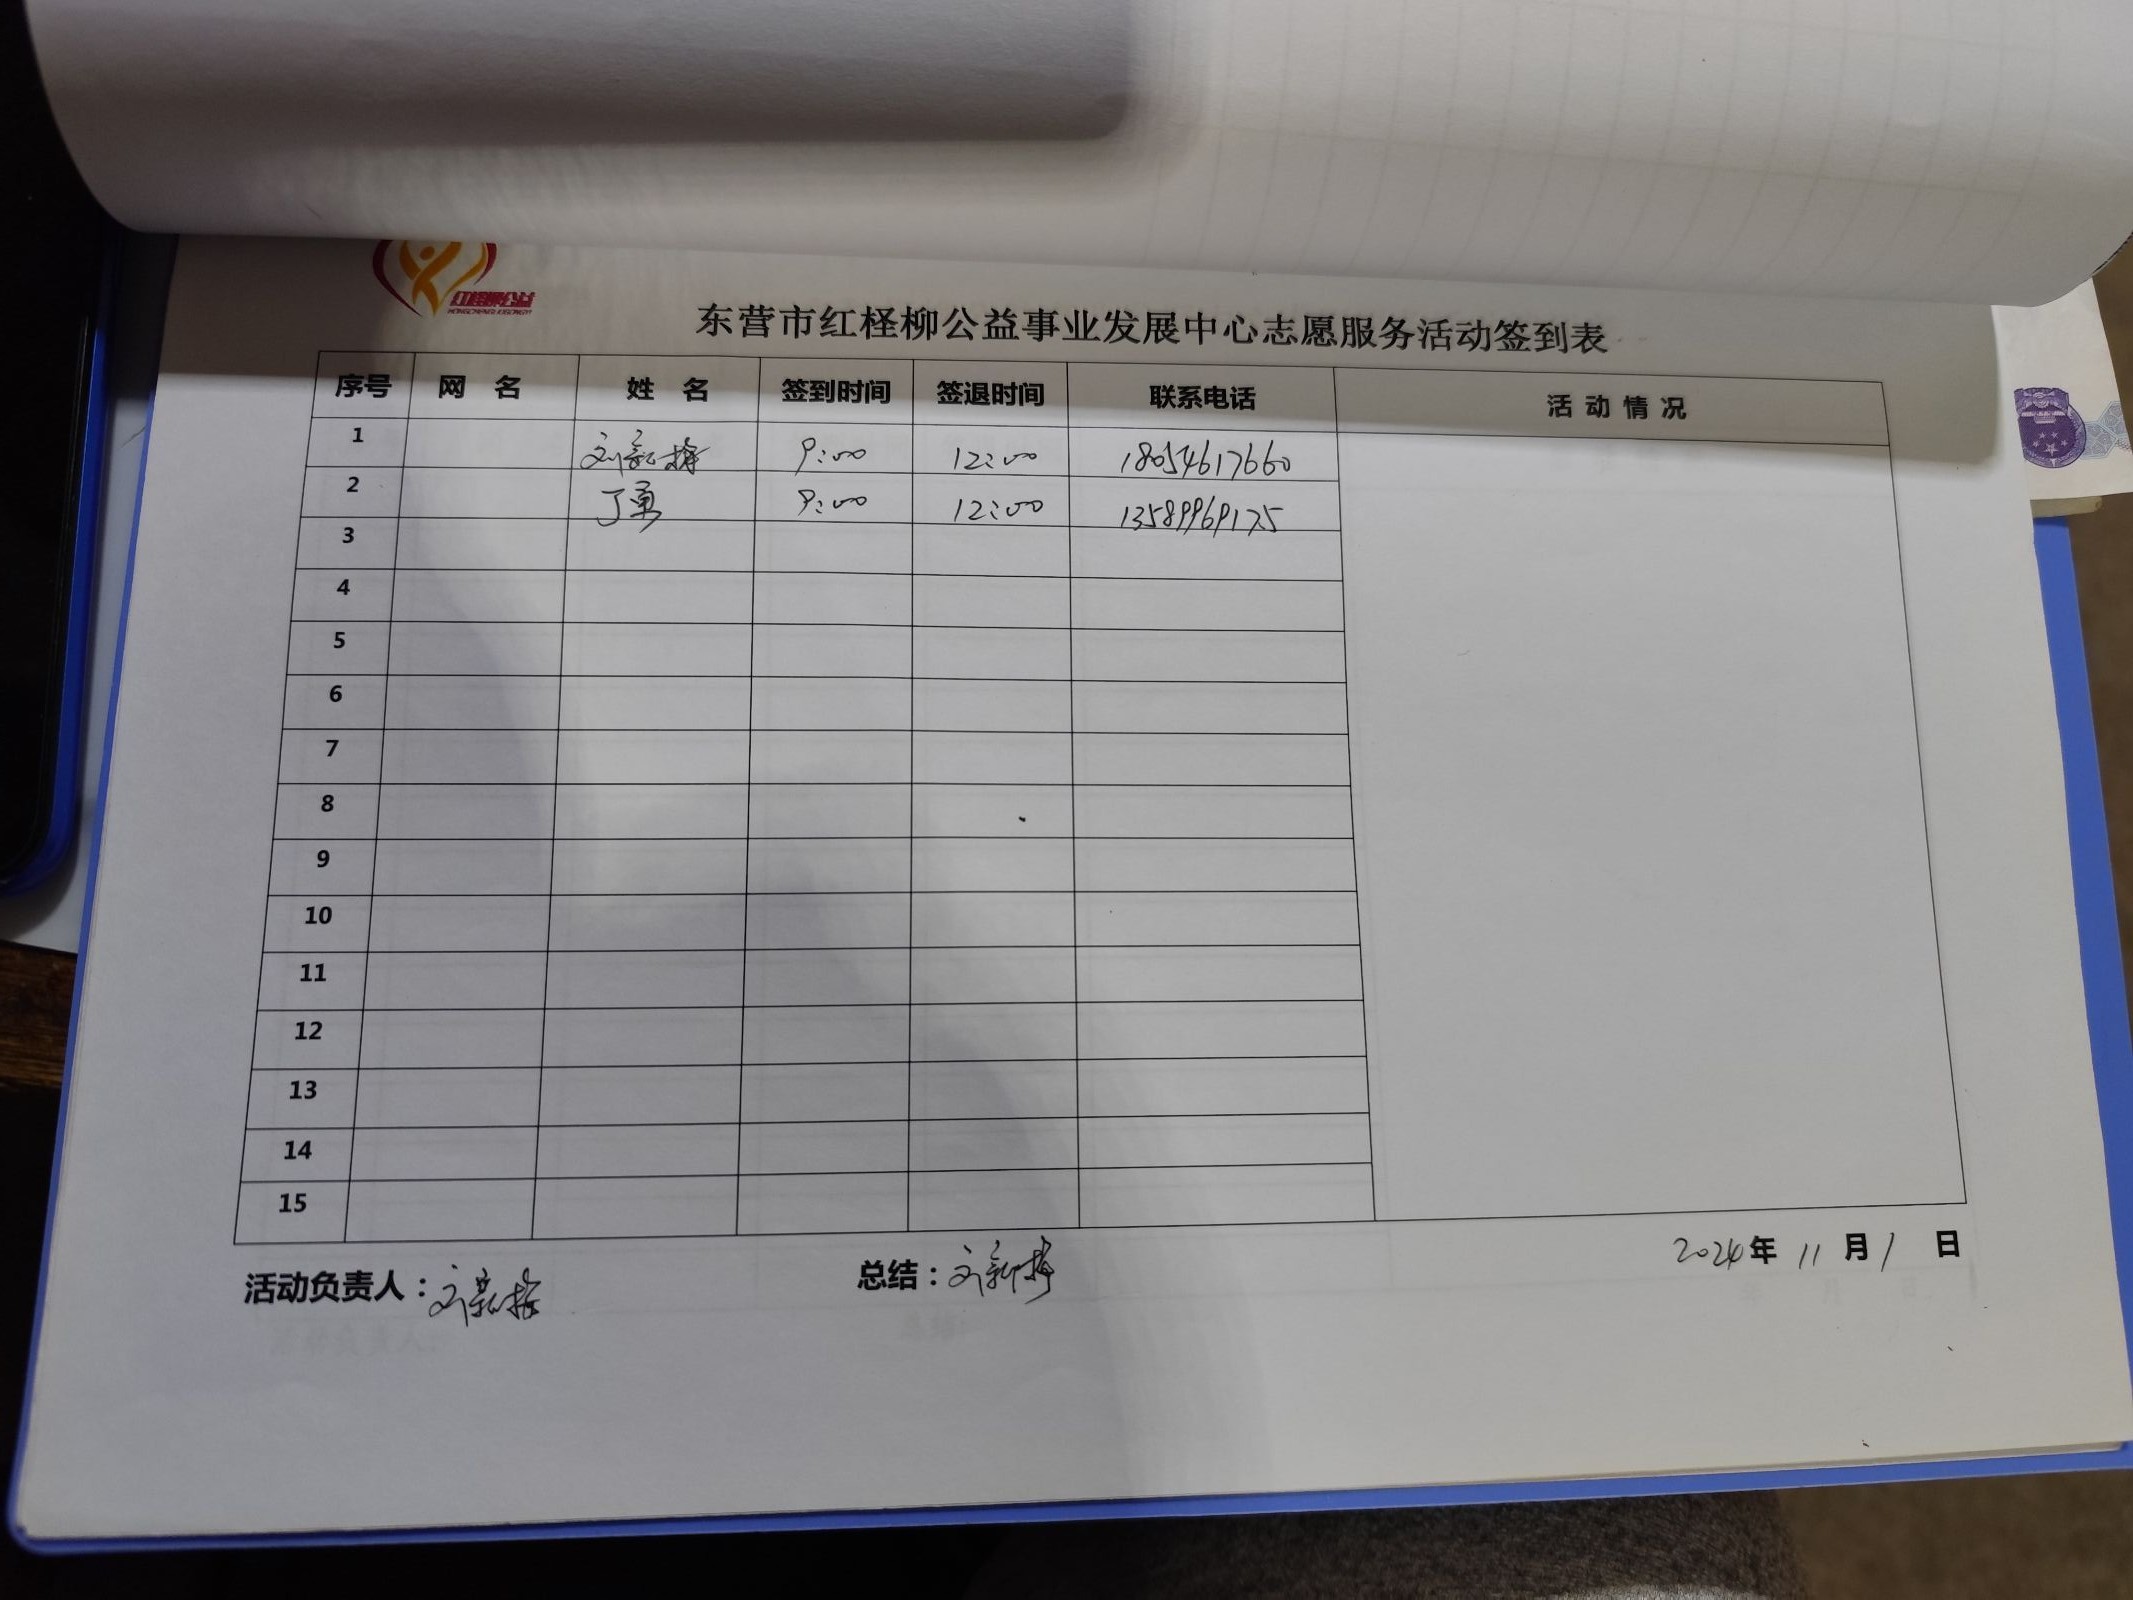 红柽柳公益
东营市红柽柳公益事业发展中心志愿服务活动签到表
序号 网 名 姓 名 签到时间 签退时间 联系电话 活 动 情 况
1 刘新梅 9:00 12:00 18054617660
2 丁勇 9:00 12:00 13589969175
3
4
5
6
7
8
9
10
11
12
13
14
15
活动负责人：刘新梅 总结：刘新梅 2024年 11 月 1 日